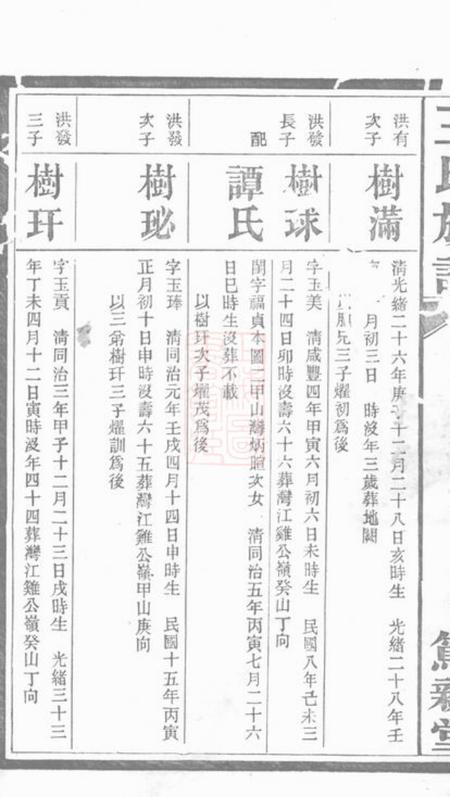 王氏族譜
篤親堂
洪有
次子
樹滿
清光緒二十六年庚子十二月二十八日亥時生 光緒二十八年壬
月初三日 時沒年三歲葬地闕
三子燿初為後
洪發
長子
樹球
字玉美 清咸豐四年甲寅六月初六日未時生 民國八年己未三
月二十四日卯時沒壽六十六葬灣江雞公嶺癸山丁向
配
譚氏
閨字福貞本圖二甲山灣炳暄次女 清同治五年丙寅七月二十六
日巳時生沒葬不載
以樹玕次子燿茂為後
洪發
次子
樹珌
字玉琫 清同治元年壬戌四月十四日申時生 民國十五年丙寅
正月初十日申時沒壽六十五葬灣江雞公嶺甲山庚向
以三弟樹玕三子燿訓為後
洪發
三子
樹玕
字玉貢 清同治三年甲子十二月二十三日戌時生 光緒三十三
年丁未四月十二日寅時沒年四十四葬灣江雞公嶺癸山丁向